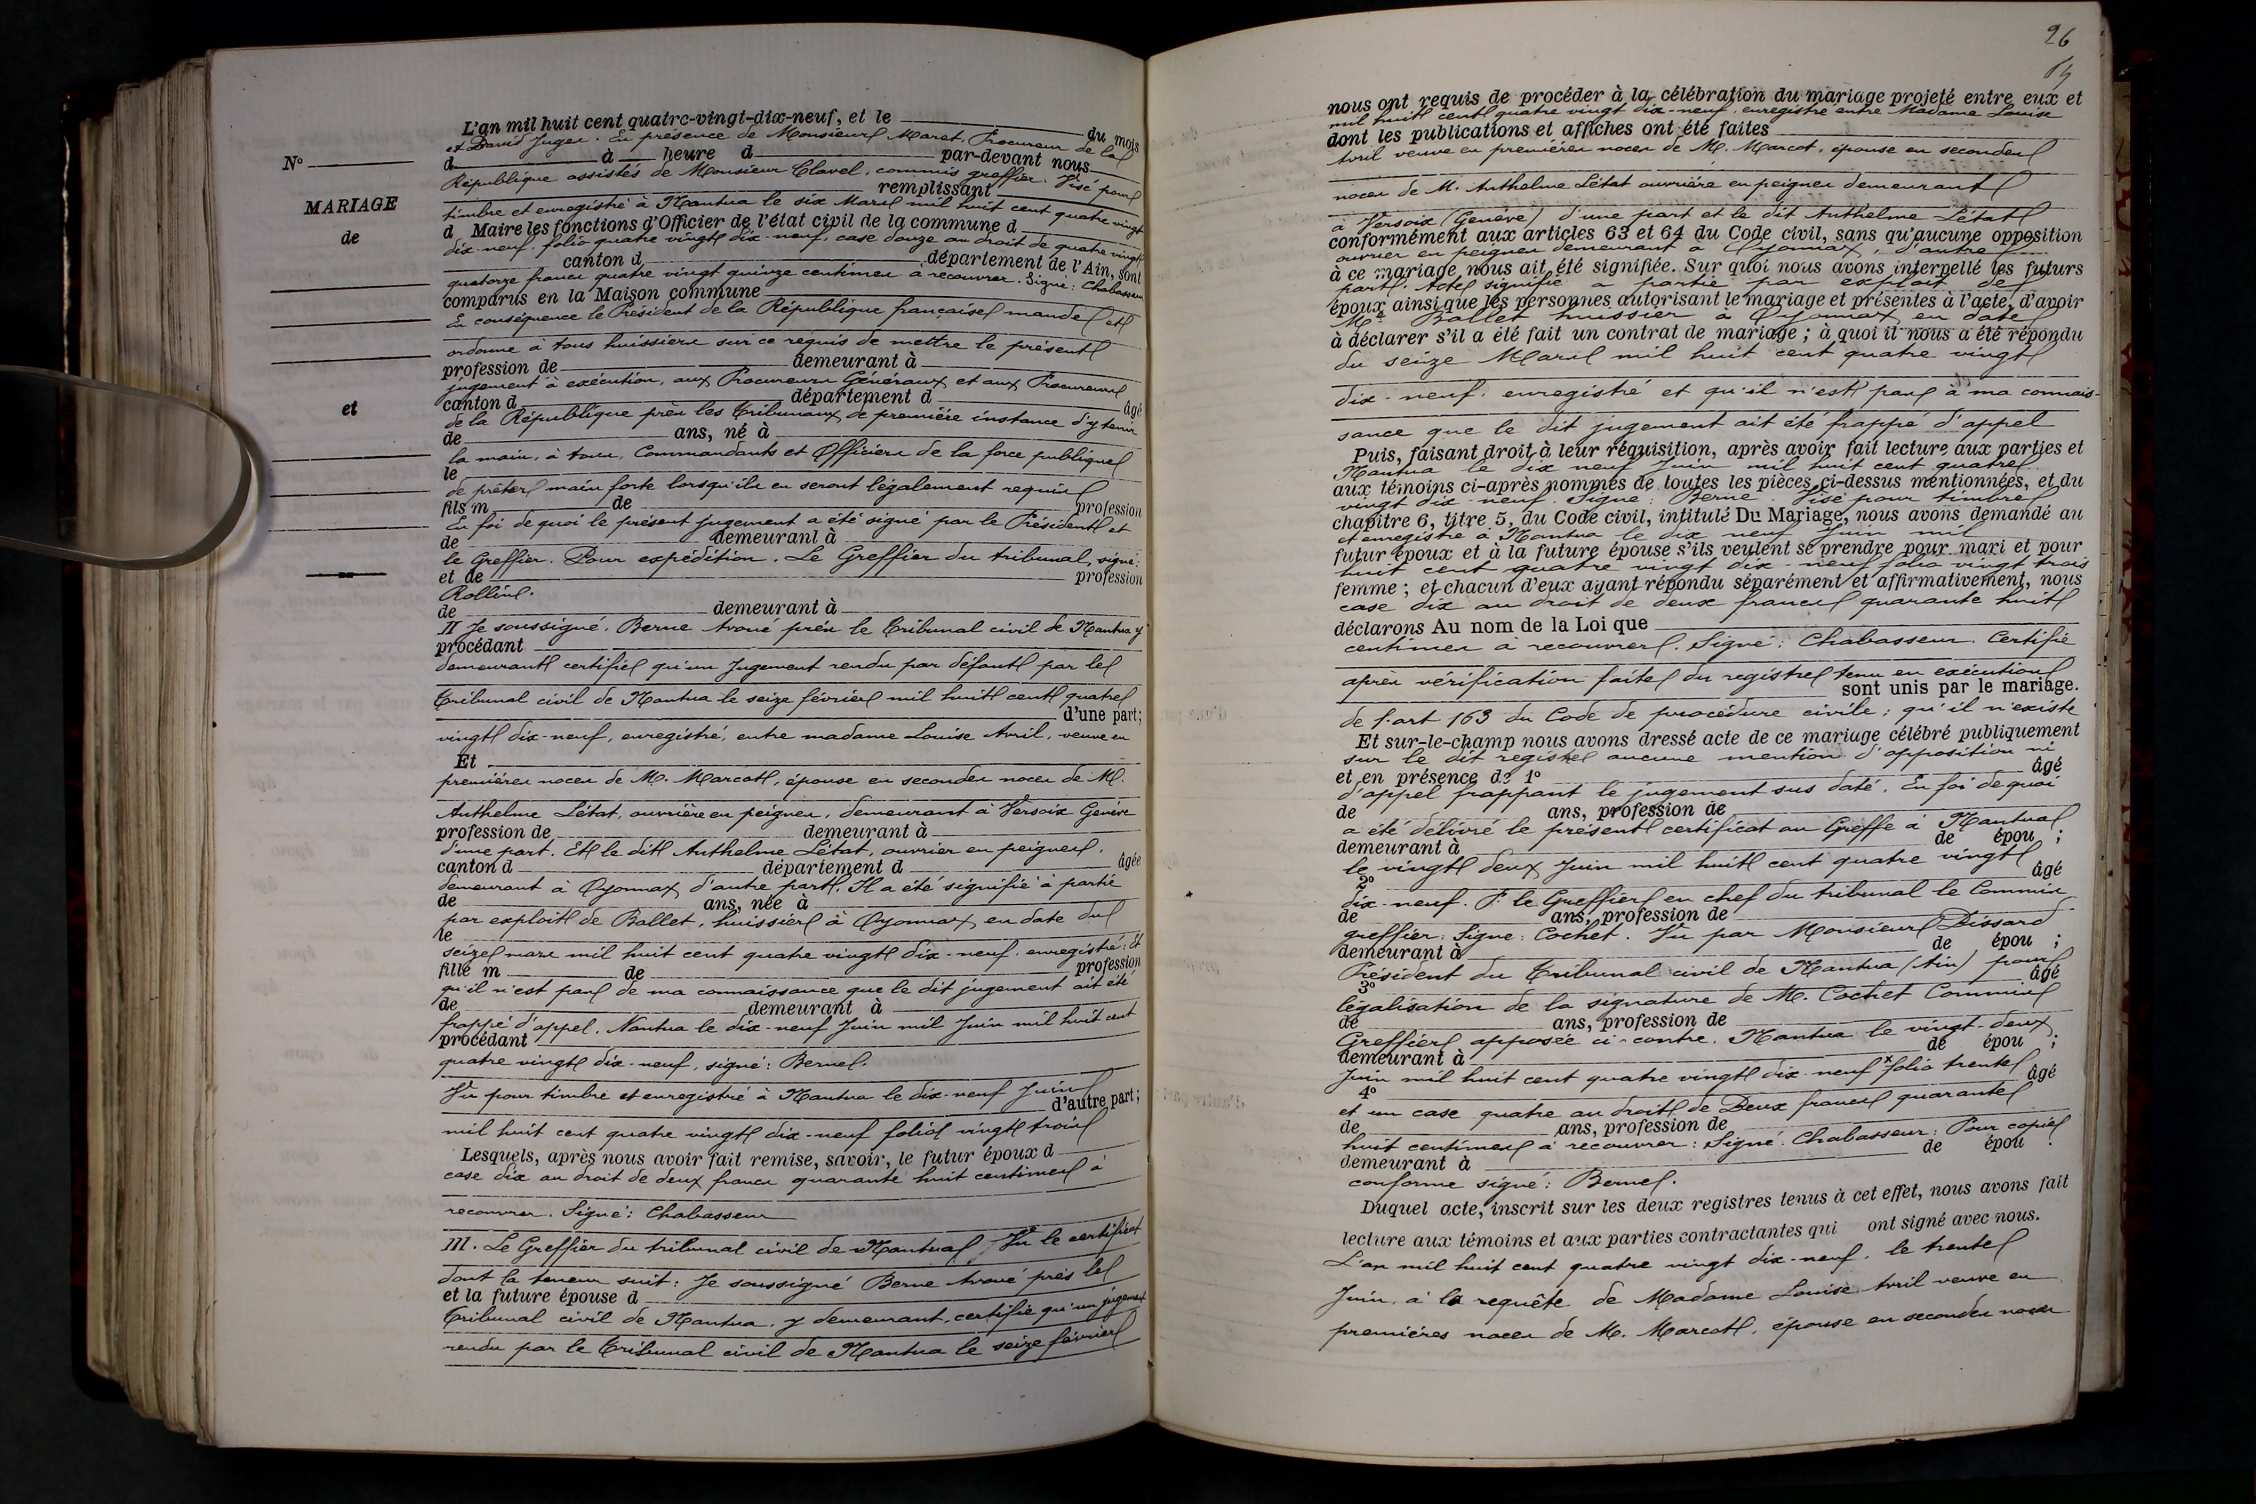 L'an mil huit cent quatre-vingt-dix-neuf, et le du mois
et David Juges. En présence de Monsieur Maret, Procureur de la
d à heure d par-devant nous
République assistés de Monsieur Clavel, commis greffier. Visé pour
remplissant
timbre et enregistré à Nantua le six Mars mil huit cent quatre vingt
d Maire les fonctions d'Officier de l'état civil de la commune d
dix-neuf, folio quatre vingt dix-neuf, case douze au droit de quatre vingt
canton d département de l'Ain, sont
quatorze francs quatre vingt quinze centimes à recouvrer. Signé: Chabasseur
comparus en la Maison commune
En conséquence le Président de la République française mande et
ordonne à tous huissiers sur ce requis de mettre le présent
profession de demeurant à
jugement à exécution, aux Procureurs Généraux et aux Procureurs
canton d département d âgé
de la République près les Tribunaux de première instance d'y tenir
de ans, né à
la main, à tous, Commandants et Officiers de la force publique
le
de prêter main forte lorsqu'ils en seront légalement requis
fils m de profession
En foi de quoi le présent jugement a été signé par le Président et
de demeurant à
le Greffier. Pour expédition. Le Greffier du tribunal, signé:
et de profession
Rollin.
de demeurant à
II Je soussigné, Berne Avoué près le Tribunal civil de Nantua y
procédant
demeurant certifie qu'un Jugement rendu par défaut par le
Tribunal civil de Nantua le seize février mil huit cent quatre
d'une part;
vingt dix-neuf, enregistré, entre madame Louise Avril, veuve en
Et
premières noces de M. Marcot, épouse en secondes noces de M.
Anthelme Létat, ouvrière en peignes, demeurant à Versoix Genève
profession de demeurant à
d'une part. Et le dit Anthelme Létat, ouvrier en peignes,
canton d département d âgée
demeurant à Oyonnax d'autre part. Il a été signifié à partie
de ans, née à
par exploit de Ballet, huissier à Oyonnax en date du
le
seize mars mil huit cent quatre vingt dix-neuf, enregistré: Et
fille m de profession
qu'il n'est pas de ma connaissance que le dit jugement ait été
de demeurant à
frappé d'appel. Nantua le dix-neuf Juin mil Juin mil huit cent
procédant
quatre vingt dix-neuf, signé: Berne.
Vu pour timbre et enregistré à Nantua le dix-neuf Juin
d'autre part;
mil huit cent quatre vingt dix-neuf folio vingt trois
Lesquels, après nous avoir fait remise, savoir, le futur époux d
case dix au droit de deux francs quarante huit centimes à
recouvrer. Signé: Chabasseur
III. Le Greffier du tribunal civil de Nantua, Vu le certificat
dont la teneur suit: Je soussigné Berne Avoué près le
et la future épouse d
Tribunal civil de Nantua, y demeurant, certifie qu'un jugement
rendu par le Tribunal civil de Nantua le seize février
N°
MARIAGE
de
et
26
nous ont requis de procéder à la célébration du mariage projeté entre eux et
mil huit cent quatre vingt dix-neuf, enregistré entre Madame Louise
dont les publications et affiches ont été faites
Avril veuve en premières noces de M. Marcot, épouse en secondes
noces de M. Anthelme Létat ouvrière en peignes demeurant
à Versoix (Genève) d'une part et le dit Anthelme Létat
conformément aux articles 63 et 64 du Code civil, sans qu'aucune opposition
ouvrier en peignes demeurant à Oyonnax, d'autre
à ce mariage nous ait été signifiée. Sur quoi nous avons interpellé les futurs
part. Acte signifié à partie par exploit de
époux ainsi que les personnes autorisant le mariage et présentes à l'acte, d'avoir
Me Ballet huissier à Oyonnax en date
à déclarer s'il a été fait un contrat de mariage ; à quoi il nous a été répondu
du seize Mars mil huit cent quatre vingt
dix-neuf, enregistré et qu'il n'est pas à ma connais-
sance que le dit jugement ait été frappé d'appel
Puis, faisant droit à leur réquisition, après avoir fait lecture aux parties et
Nantua le dix neuf Juin mil huit cent quatre
aux témoins ci-après nommés de toutes les pièces ci-dessus mentionnées, et du
vingt dix-neuf. Signé: Berne. Visé pour timbre
chapitre 6, titre 5, du Code civil, intitulé Du Mariage, nous avons demandé au
et enregistré à Nantua le dix neuf Juin mil
futur époux et à la future épouse s'ils veulent se prendre pour mari et pour
huit cent quatre vingt dix-neuf folio vingt trois
femme ; et chacun d'eux ayant répondu séparément et affirmativement, nous
case dix au droit de deux francs quarante huit
déclarons Au nom de la Loi que
centimes à recouvrer. Signé: Chabasseur. Certifie
après vérification faite du registre tenu en exécution
sont unis par le mariage.
de l'art 163 du Code de procédure civile; qu'il n'existe
Et sur-le-champ nous avons dressé acte de ce mariage célébré publiquement
sur le dit registre aucune mention d'opposition ni
et en présence de 1° âgé
d'appel frappant le jugement sus daté. En foi de quoi
de ans, profession de
a été délivré le présent certificat au Greffe à Nantua
demeurant à de épou ;
le vingt deux Juin mil huit cent quatre vingt
2° âgé
dix-neuf. P. le Greffier en chef du tribunal le Commis
de ans, profession de
greffier. Signé: Cochet. Vu par Monsieur Dissard
demeurant à de épou ;
Président du Tribunal civil de Nantua (Ain) pour
3° âgé
légalisation de la signature de M. Cochet Commis
de ans, profession de
Greffier apposée ci-contre. Nantua le vingt-deux
demeurant à de épou ;
Juin mil huit cent quatre vingt dix-neuf x folio trente
4° âgé
et un case quatre au droit de Deux francs quarante
de ans, profession de
huit centimes à recouvrer: Signé. Chabasseur: Pour copie
demeurant à de épou .
conforme signé: Berne.
Duquel acte, inscrit sur les deux registres tenus à cet effet, nous avons fait
lecture aux témoins et aux parties contractantes qui ont signé avec nous.
L'an mil huit cent quatre vingt dix-neuf, le trente
Juin, à la requête de Madame Louise Avril veuve en
premières noces de M. Marcot, épouse en secondes noces